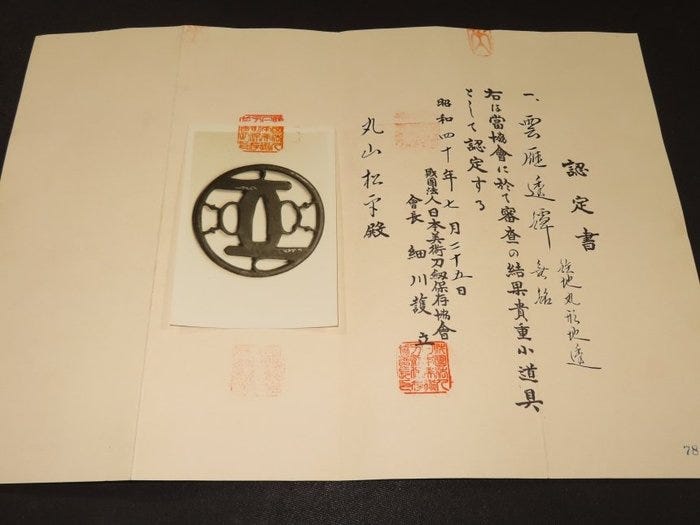 認定書
一、雲雁透鐔 無銘
鉄地丸形地透
右は當協會に於て審査の結果貴重小道具
として認定する
昭和四十年七月二十五日
財團法人日本美術刀劍保存協會
會長 細川護立
丸山松平殿
78